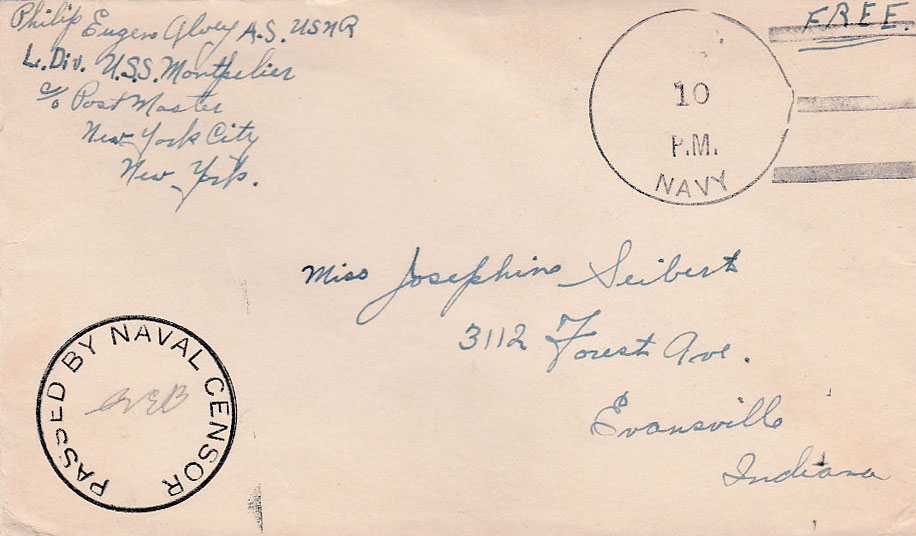 Philip Eugene Alvey A.S. USNR
L. Div. U.S.S. Montpelier
c/o Post Master
New York City
New York.
FREE.
10
P.M.
NAVY
Miss Josephine Seibert
3112 Forest Ave.
Evansville
Indiana
PASSED BY NAVAL CENSOR